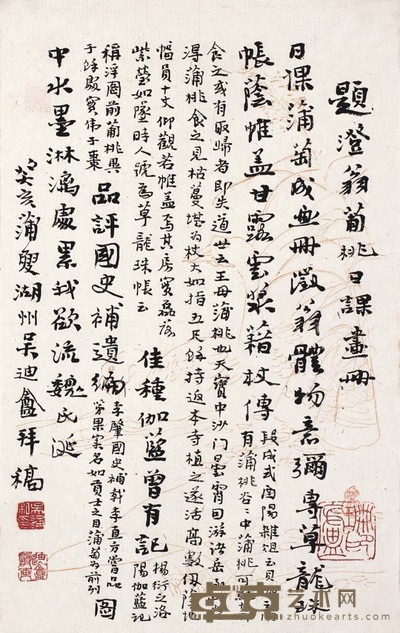 題澄翁葡桃日課畫冊
日課蒲萄成畫冊澂翁體物意彌專草龍珠
帳蔭帷蓋甘露雲漿籍杖傳
段成式酉陽雜俎云貝丘之南
有蒲桃谷谷中蒲桃可就
食之或有取歸者即失道世云王母蒲桃也天寶中沙門曇霄因游諸岳至
得蒲桃食之見枯蔓堪為杖大如指五尺餘持返本寺植之遂活高數仞蔭地
幅員十丈仰觀若帷蓋焉其房實磊落
紫瑩如墜時人號為草龍珠帳云
佳種伽藍曾有記
楊衒之洛
陽伽藍記
稱浮圖前葡桃異
于餘處實偉于棗
品評國史補遺編
李肇國史補載李直方嘗品
第果實名如貢士之目蒲萄為前列
圖
中水墨淋漓處累我欲流魏氏涎
癸亥蒲叟湖州吳迪盦拜稿
艺术网
www.zhuokearts.com